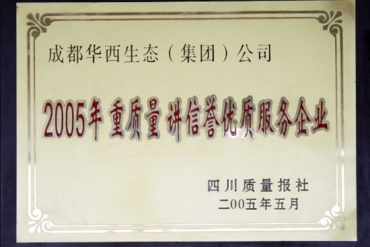 成都华西生态（集团）公司
2005年重质量 讲信誉优质服务企业
四川质量报社
二00五年五月